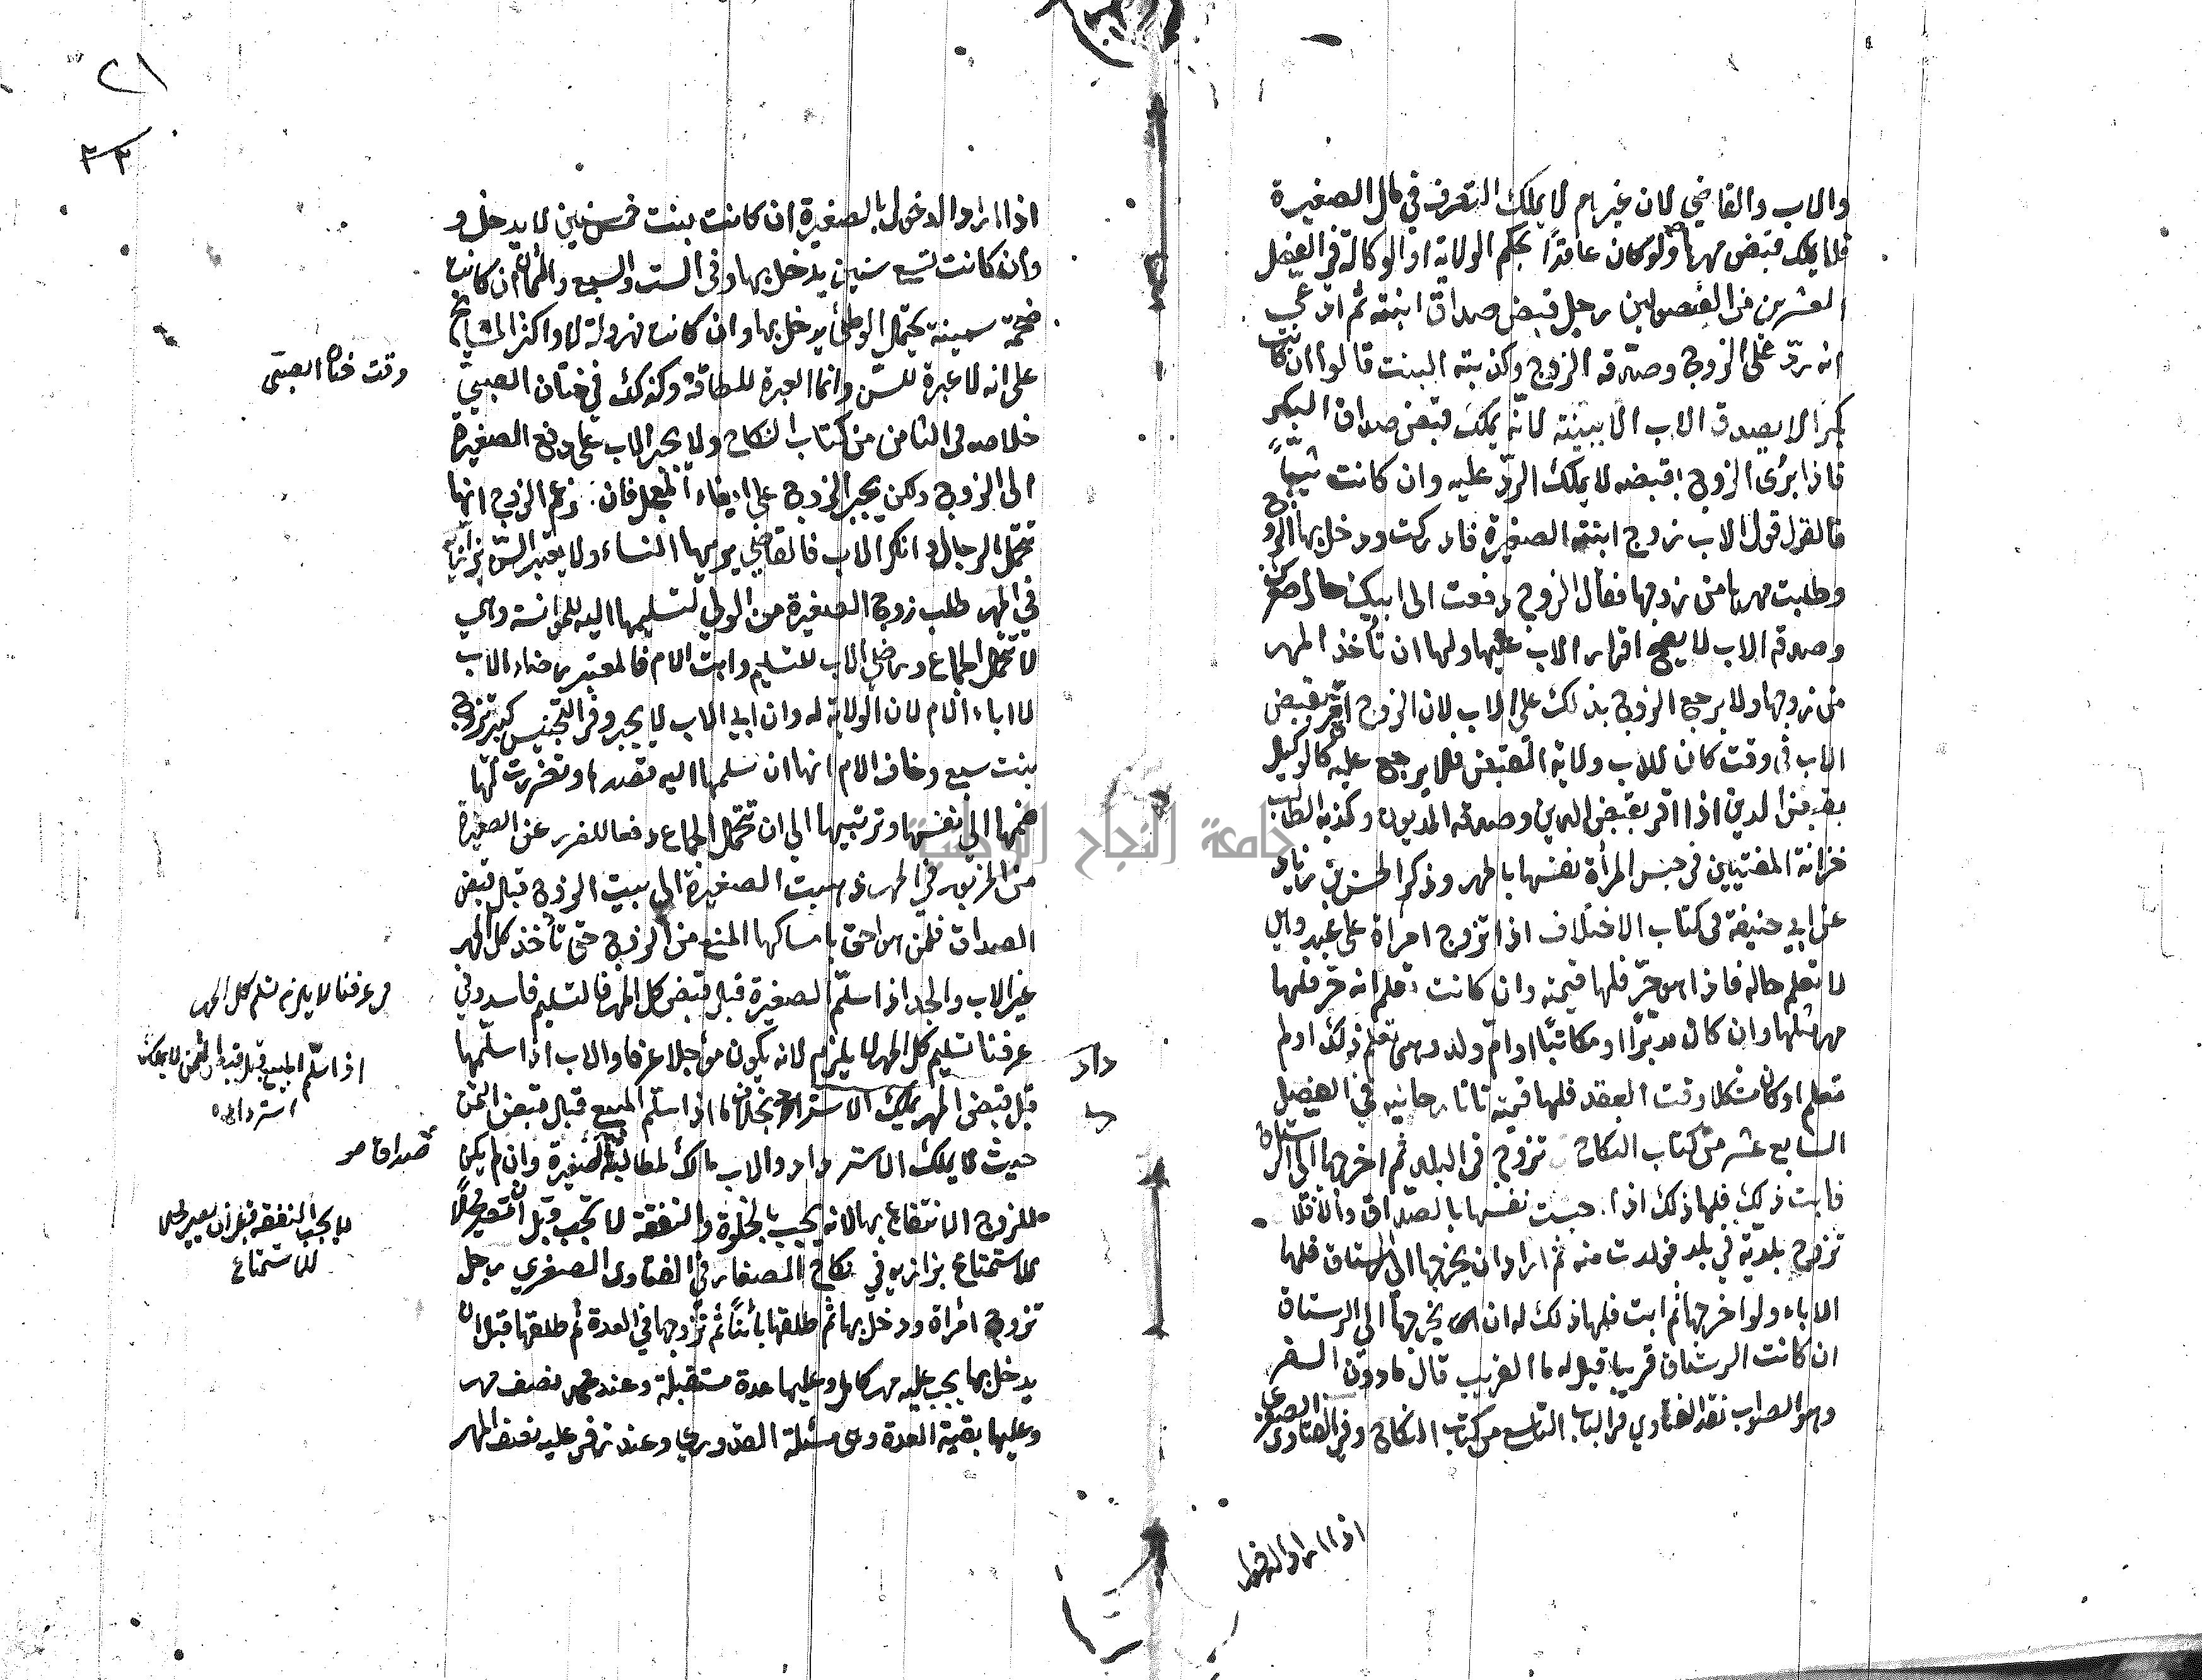 والاب والقاضي لان غيرهم لا يملك التصرف في مال الصغيرة
فلا يملك قبض مهرها ولو كان عاقدًا بحكم الولاية او الوكالة في الفصل
العشرين من الفصولين رجل قبض صداق ابنته ثم ادعى
انه ردّ على الزوج وصدّقه الزوج وكذبته البنت قالوا ان كانت
بكرا لا يصدق الاب الا ببينة لانّه يملك قبض صداق البكر
فاذا برئ الزوج بقبضه لا يملك الردّ عليه وان كانت ثيبًا
فالقول قول الاب زوج ابنته الصغيرة فادركت ودخل بها الزوج
وطلبت مهرها من زوجها فقال الزوج دفعت الى ابيك حال صغرك
وصدقه الاب لا يصح اقرار الاب عليها ولها ان تأخذ المهر
من زوجها ولا يرجع الزوج بذلك على الاب لان الزوج اقر بقبض
الاب في وقت كان للاب ولاية القبض فلا يرجع عليه كالوكيل
بقبض الدين اذا اقر بقبض الدين وصدقه المديون وكذبه الطالب
خزانة المفتيين في حبس المرأة نفسها بالمهر وذكر الحسن بن زياد
عن ابي حنيفة في كتاب الاختلاف اذا تزوج امرأة على عبد وهي
لا تعلم حاله فاذا هو حرّ فلها قيمته وان كانت تعلم انه حر فلها
مهر مثلها وان كان مدبرًا او مكاتبًا او امّ ولد وهي تعلم ذلك او لم
تعلم او كان مشكلا وقت العقد فلها قيمته تاتارخانيه في الفصل
السابع عشر من كتاب النكاح تزوج في البلد ثم اخرجها الى الرستاق
فابت ذلك فلها ذلك اذا حبست نفسها بالصداق والا فلا
تزوج بلدية في بلد فولدت منه ثم اراد ان يخرجها الى الرستاق فلها
الاباء ولو اخرجها ثم ابت فلها ذلك له ان يخرجها الى الرستاق
ان كانت الرستاق قريبا قيل له ما القريب قال ما دون السفر
وهو الصواب نقد الفتاوي في الباب التاسع من كتاب النكاح وفي الفتاوى الصغرى
اذا اراد الدخول
٢١
٢٢
اذا اراد الدخول بالصغيرة ان كانت بنت خمس سنين لا يدخل و
وان كانت تسع سنين يدخل بها وفي الست والسبع والثمان ان كانت
ضخمة سمينة يحتمل الوطئ يدخل بها وان كانت مهزولة لا واكثر المشايخ
على انه لا عبرة للسّن وانما العبرة للطاقة وكذلك في ختان الصبيّ
خلاصه في الثامن من كتاب النكاح ولا يجبر الاب على دفع الصغيرة
الى الزوج ولكن يجبر الزوج على ايفاء المعجل فان زعم الزوج انها
تتحمل الرجال وانكر الاب فالقاضي يريها النساء ولا يعتبر السّن بزازيه
في المهر طلب زوج الصغيرة من الولي لتسليمها اليه للموانسة وهي
لا تتحمل الجماع ورضي الاب للتسليم وابت الام فالمعتبر رضاء الاب
لا اباء الام لان الولاية له وان ابى الاب لا يجبر وفي التجنيس كبير تزوج
بنت سبع وخاف الام انها ان سلمها اليه تقصدها وتضررت لها
ضمها الى نفسها وتربيتها الى ان تتحمل الجماع دفعا للضرر عن الصغيرة
من المزبور في المهر ذهبت الصغيرة الى بيت الزوج قبل قبض
الصداق فلمن هو احق بامساكها المنع من الزوج حتى تأخذ كل المهر
غير الاب والجد اذا سلّم الصغيرة قبل قبض كل المهر فالتسليم فاسد وفي
عرفنا تسليم كل المهر لا يلزم لانه يكون مؤجلا عرفا والاب اذا سلّمها
قبل قبض المهر يملك الاسترداد بخلاف ما اذا سلّم المبيع قبل قبض الثمن
حيث لا يملك الاسترداد والاب مالك لمطالبة الصغيرة وان لم يكن
للزوج الانتفاع بها لانه يجب بالخلوة والنفقة لا تجب قبل ان تصير محلًا
للاستمتاع بزازيه في نكاح الصغار في الفتاوى الصغرى رجل
تزوج امرأة ودخل بها ثم طلقها بائنًا ثم تزوجها في العدة ثم طلقها قبل ان
يدخل بها يجب عليه مهر كامل وعليها عدة مستقبلة وعند محمد نصف مهر
وعليها بقية العدة وهي مسئلة القدوري وعند زفر عليه نصف المهر
وقت ختان الصبى
في عرفنا لا يلزم تسلم كل المهر
اذ سلّم المبيع قبل قبض الثمن لا يملك
استرداده
لا يجب النفقة قبل ان يصير محلا
للاستمتاع
داد
جامعة النجاح الوطنية